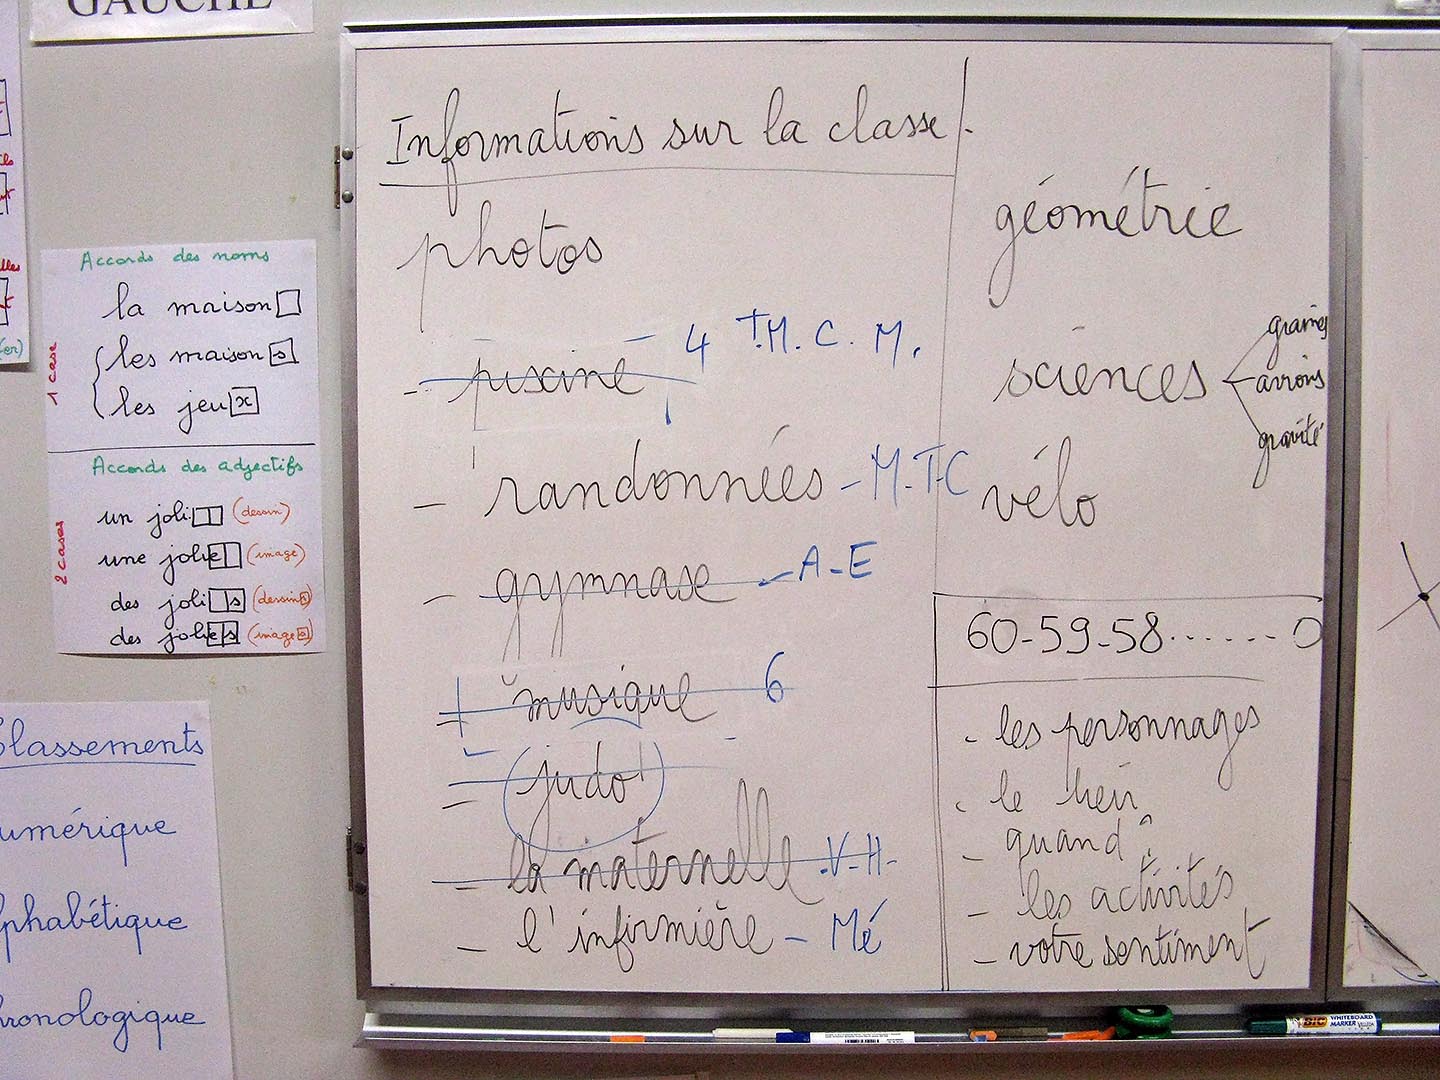 GAUCHE
Accords des noms
la maison
les maison s
les jeu x
1 case
Accords des adjectifs
un joli (dessin)
une joli e (image)
des joli s (dessin s)
des joli e s (image s)
2 cases
Classements
numérique
alphabétique
chronologique
Informations sur la classe.
photos
- piscine - 4 T.M.C.M.
- randonnées - M-T-C
- gymnase - A-E
- musique 6
- judo
- la maternelle - V-H-
- l'infirmière - Mé
géométrie
sciences
graines
avions
gravité
vélo
60-59-58.......0
- les personnages
- le lieu
- quand ?
- les activités
- votre sentiment
BIC WHITEBOARD MARKER